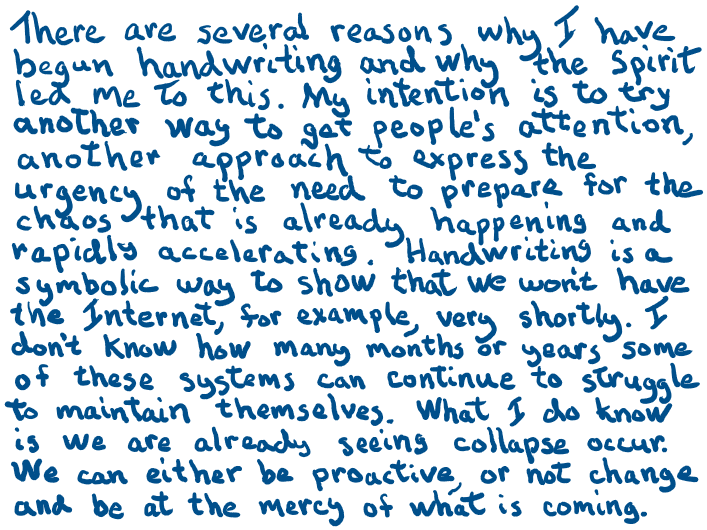 There are several reasons why I have
begun handwriting and why the Spirit
led me to this. My intention is to try
another way to get people's attention,
another approach to express the
urgency of the need to prepare for the
chaos that is already happening and
rapidly accelerating. Handwriting is a
symbolic way to show that we won't have
the Internet, for example, very shortly. I
don't know how many months or years some
of these systems can continue to struggle
to maintain themselves. What I do know
is we are already seeing collapse occur.
We can either be proactive, or not change
and be at the mercy of what is coming.